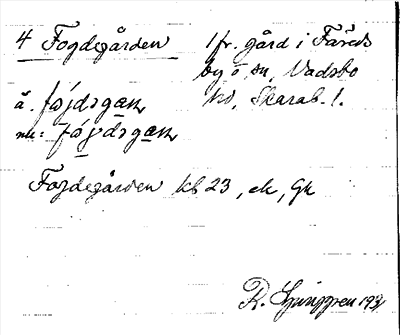 4 Fogdegården
1 fr. gård i Färeds
by o sn, Vadsbo
hd, Skarab. l.
å. fo̱jdsga̱ɳ
nk: fo̱jdsga̱ɳ
Fogdegården kb 23, ek, Gk
R. Ljunggren 1931